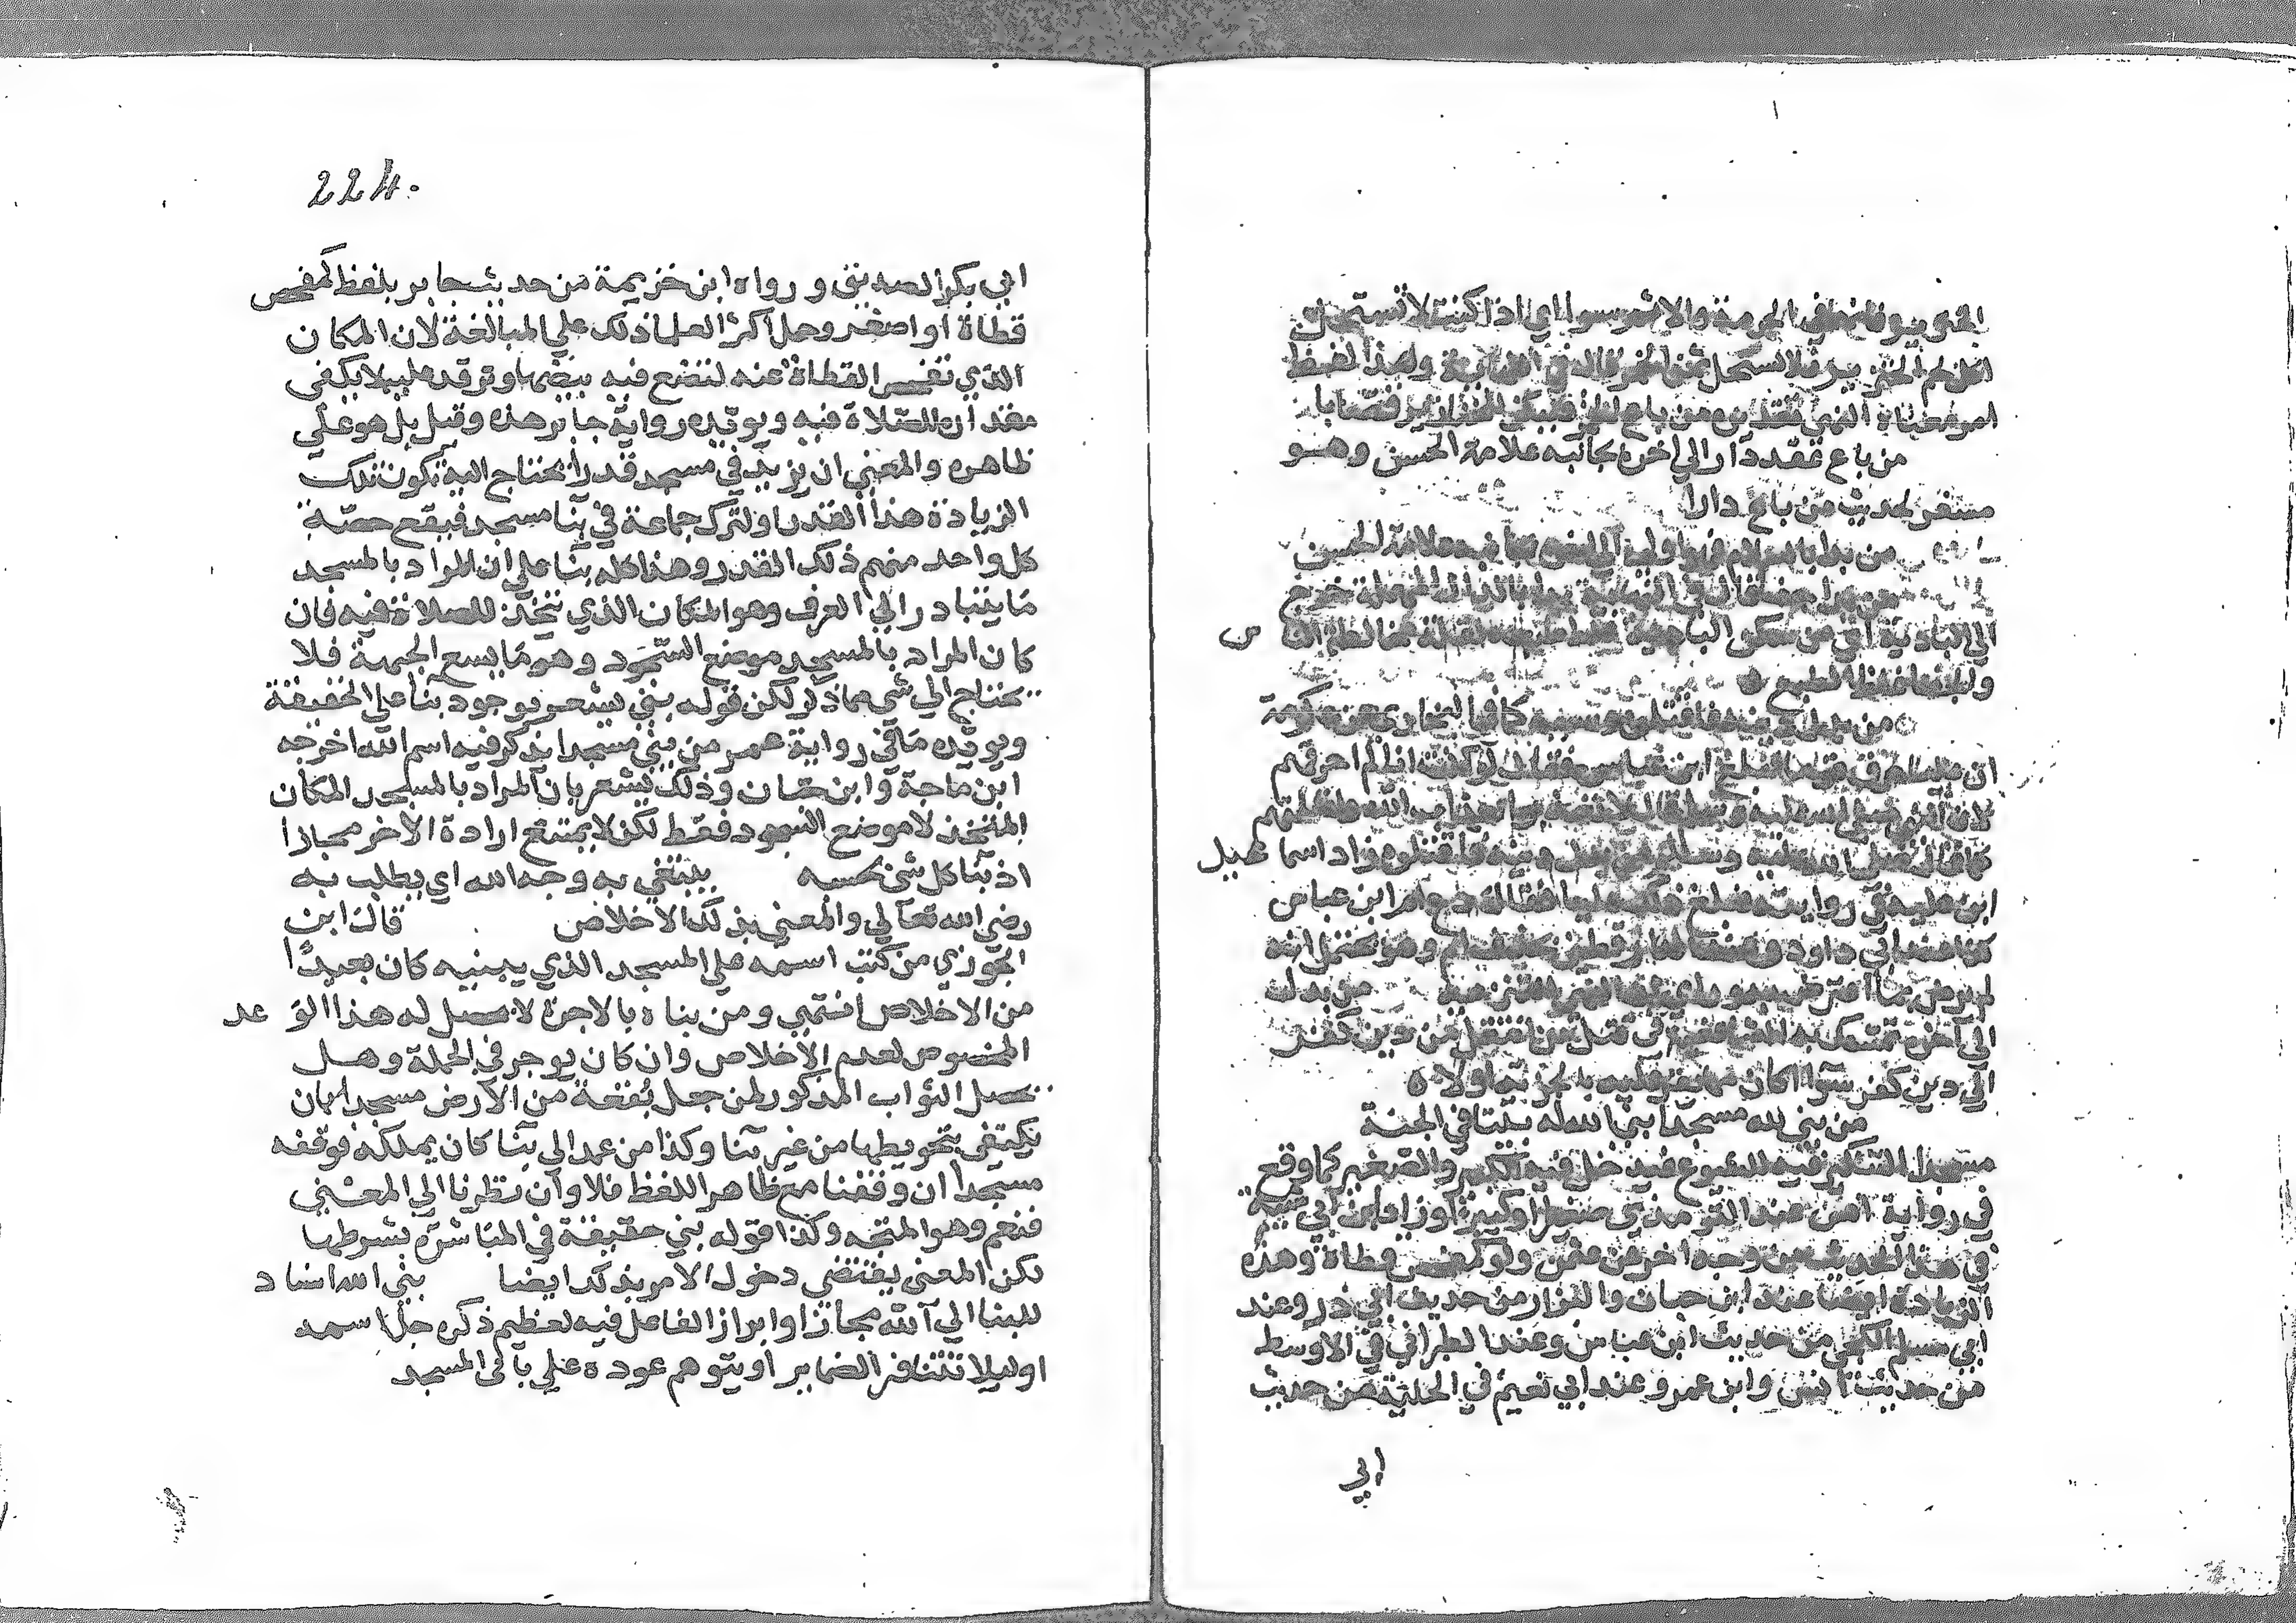 اكل لحم الخنزير فلا تستحل ثمن الخمر قال في النهاية وهذا لفظ
امر معناه النهي تقديره من باع الخمر فليكن للخنازير قصابا
من باع عقر دارا الي اخره بجانبه علامة الحسن وهو
مستغن لحديث من باع دارا
من بدا بالسلام فهو اولي الي اخره بجانبه علامة الحسن
من بدا جفا قال في النهاية بدا بالدال المهملة خرج
الي البادية اي من سكن البادية غلظ طبعه لقلة مخالطة النا س
والجفا غلظ الطبع
من بدل دينه فاقتلوه وسببه كما في البخاري عن عكرمة
ان عليا حرق قوما فبلغ ابن عباس فقال لو كنت انا لم احرقهم
لان النبي صلي الله عليه وسلم قال لا تعذبوا بعذاب الله ولقتلتهم
كما قال النبي صلي الله عليه وسلم من بدل دينه فاقتلوه زاد اسما عيل
ابن علية في روايته فبلغ ذلك عليا فقال ويح امر ابن عباس
كذا عند ابي داود وعند الدارقطني بحذف ام وهو محتمل انه
لم يرض بما اعترض به وراي ان النهي للتنزيه من بدل
الي اخره تمسك به الشافعية في قتل من انتقل من دين كفر
الي دين كفر سوا كان ممن يقر عليه بالجزية او لا ه
من بني لله مسجدا بني الله له بيتا في الجنة
مسجدا التنكير فيه للشيوع فيدخل فيه الكبير والصغير كما وقع
في رواية انس عند الترمذي صغيرا او كبيرا وزاد ابن ابي شيبة
في هذا الحديث من وجه اخر عن عثمن ولو كمفحص قطاة وهذه
الزيادة ايضا عند ابن حبان والبزار من حديث ابي ذر وعند
ابي مسلم الكجي من حديث ابن عباس وعند الطبراني في الاوسط
من حديث انس وابن عمر وعند ابي نعيم في الحلية من حديث
ابي
224.
ابي بكر الصديق ورواه ابن خزيمة من حديث جابر بلفظ كمفحص
قطاة او اصغر وحمل اكثر العلما ذلك علي المبالغة لان المكان
الذي تفحص القطاة عنه لتضع فيه بيضها وترقد عليه لا يكفي
مقداره للصلاة فيه ويويده رواية جابر هذه وقيل بل هو علي
ظاهره والمعني ان يزيد في مسجد قدرا يحتاج اليه تكون تلك
الزيادة هذا القدر او يشترك جماعة في بنا مسجد فيقع حصة
كل واحد منهم ذلك القدر وهذا كله بنا علي ان المراد بالمسجد
ما يتبادر الي العرف وهو المكان الذي يتخذ للصلاة فيه فان
كان المراد بالمسجد موضع السجود وهو ما يسع الجبهة فلا
يحتاج الي شي مما ذكر لكن قوله بني يشعر بوجود بنا علي الحقيقة
ويويده ما في رواية عمر من بني مسجدا يذكر فيه اسم الله اخرجه
ابن ماجة وابن حبان وذلك يشعر بان المراد بالمسجد المكان
المتخذ لا موضع السجود فقط لكن لا يمتنع ارادة الاخر مجازا
اذ بنا كل شي بحسبه يبتغي به وجه الله اي يطلب به
رضي الله تعالي والمعني بذلك الاخلاص قال ابن
الجوزي من كتب اسمه علي المسجد الذي يبنيه كان بعيدا
من الاخلاص انتهي ومن بناه بالاجرة لا يحصل له هذا الو عد
المخصوص لعدم الاخلاص وان كان يوجر في الجملة وهل
يحصل الثواب المذكور لمن جعل بقعة من الارض مسجدا بان
يكتفي بتحويطها من غير بنا وكذا من عمد الي بنا كان يملكه فوقفه
مسجدا ان وقفنا مع ظاهر اللفظ فلا وان نظرنا الي المعني
فنعم وهو المتجه وكذا قوله بني حقيقة في المباشرة بشرطها
لكن المعني يقتضي دخول الامر بذلك ايضا بني الله اسناد
للبنا الي الله مجازا وابراز الفاعل فيه لعظيم ذكره جل اسمه
اوليلا تتنافر الضماير او يتوهم عوده علي باني المسجد